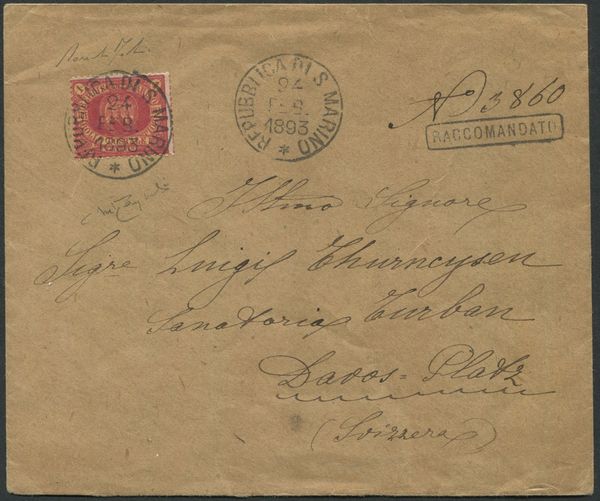 REPUBBLICA DI S. MARINO
24
FEB.
1893
REPUBBLICA DI S. MARINO
24
FEB.
1893
No 3860
RACCOMANDATO
Illmo Signore
Sigre Luigi Thurneysen
Sanatoria Turban
Davos=Platz
(Svizzera)